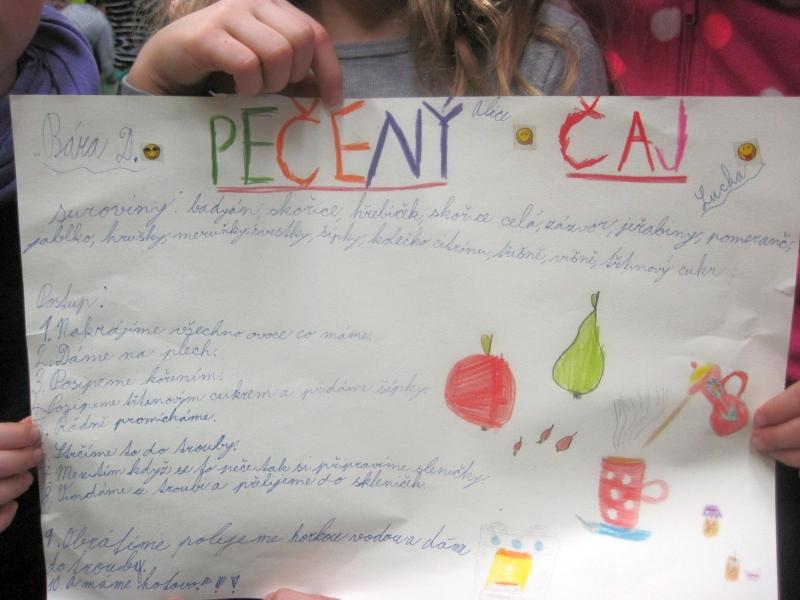 Bára D. PEČENÝ Alice ČAJ
Lucka
suroviny: badyán, skořice, hřebíček, skořice celá, zázvor, jeřabiny, pomeranč,
jablko, hrušky, meruňky, švestky, šípky, kolečko citrónu, třišně, višně, třtinový cukr.
Postup:
1. Nakrájíme všechno ovoce co máme.
2. Dáme na plech.
3. Posipeme kořením.
4. Posipeme třtinovým cukrem a přidáme šípky.
5. Řádně promícháme.
6. Strčíme to do trouby.
7. Mezitím když se to peče tak si připravíme skleničky.
8. Vindáme z trouby a nalijeme do skleniček.
9. Obrátíme polejeme horkou vodou a dáme
do trouby.
10. a máme hotovo!!!